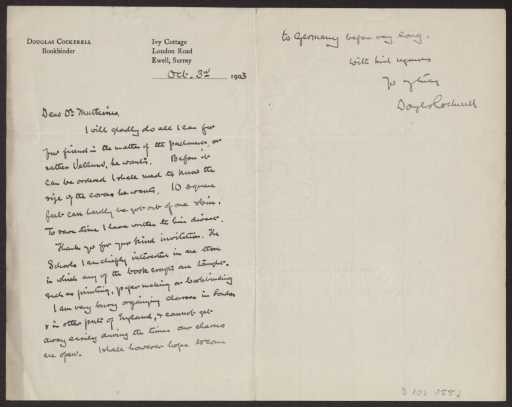 DOUGLAS COCKERELL
Bookbinder
Ivy Cottage
London Road
Ewell, Surrey
Oct. 3rd 1903
Dear Dr
I will gladly do all I can for
your friend in the matter of the parchment, or
rather Vellum, he wants. Before it
can be ordered I shall need to know the
size of the covers he wants. 10 square
feet can hardly be got out of one skin.
To save time I have written to him direct.
Thank you for your kind invitation. The
Schools I am chiefly interested in are those
in which any of the book crafts are taught.
such as printing, paper making or bookbinding
I am very busy organizing classes in London
& in other parts of England, & cannot get
away easily during the times our classes
are open. I shall however hope to come
to Germany before very long.
With kind regards
Yrs
Douglas Cockerell